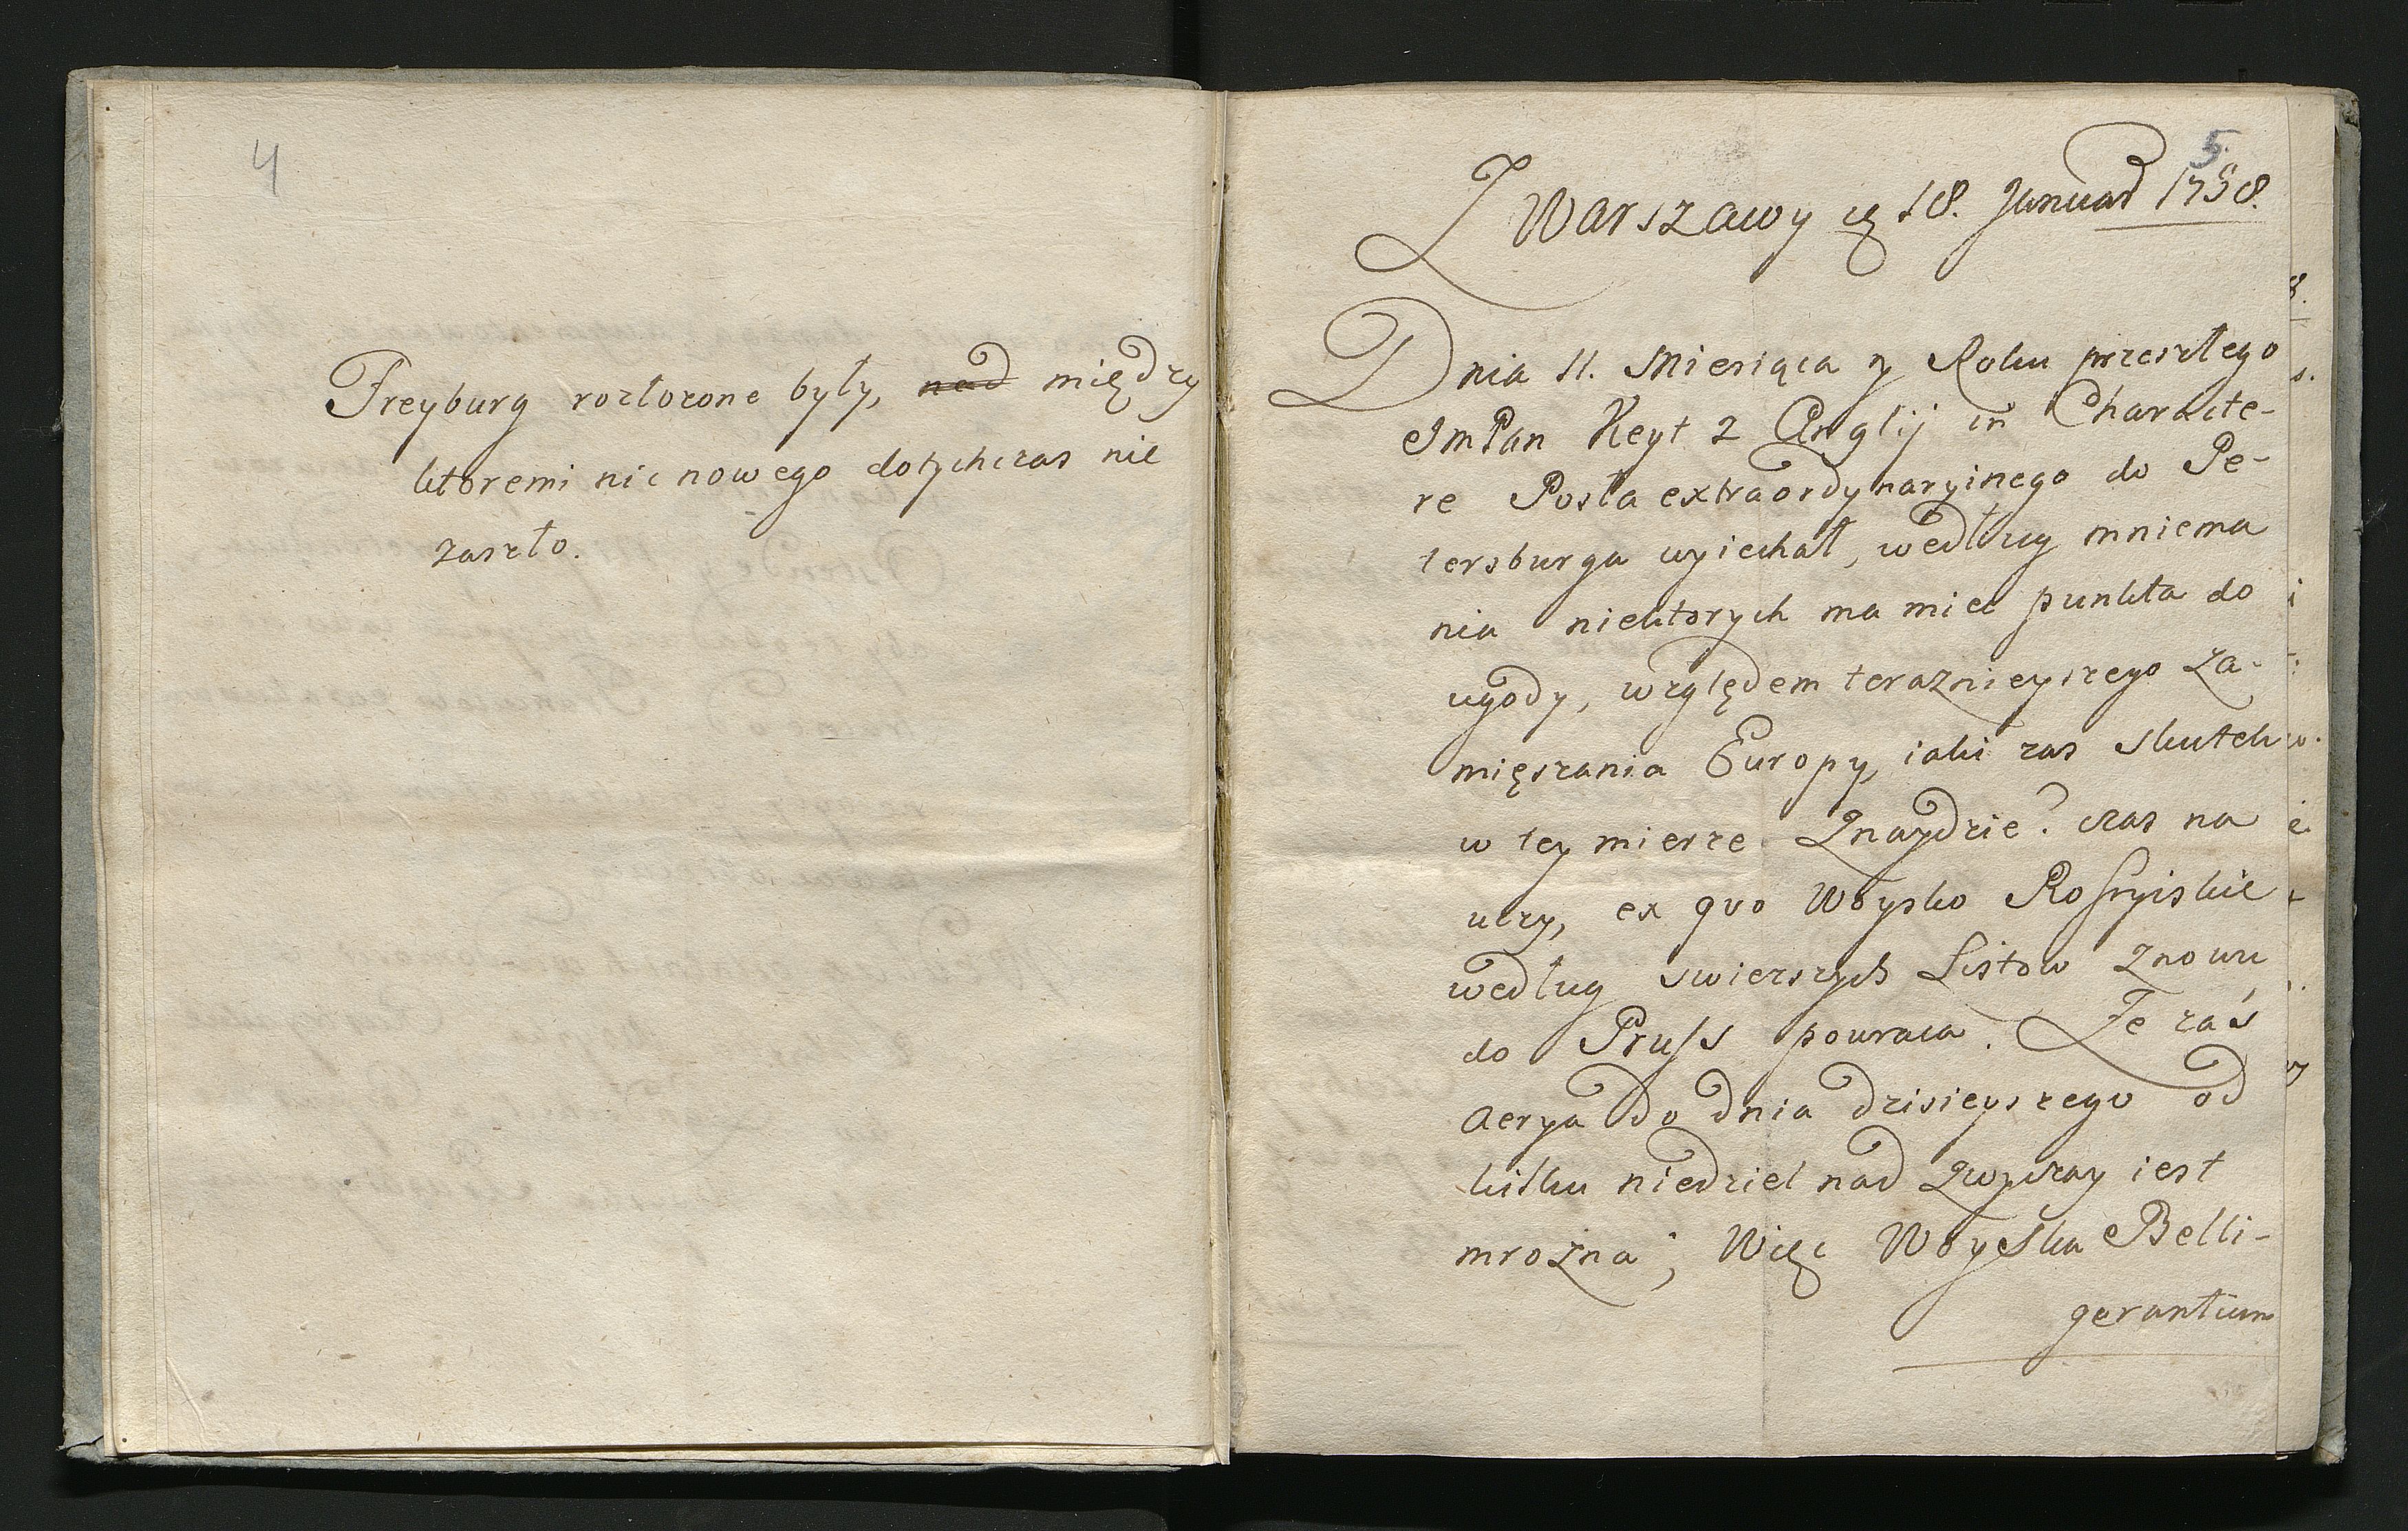 4
Freyburg rozłozone były, nad między
ktoremi nic nowego dotychczas nie
zaszło.
5.
Z Warszawy 18. Januar 1758.
Dnia 11. Miesiąca y Roku przeszłego
ImPan Keyt z Anglij in Characte-
re Posła extraordynaryinego do Pe-
tersburga wyiechał, według mniema
nia niektorych ma miec punkta do
ugody, względem teraznieyszego Za-
mięszania Europy, iaki zas skutek
w tey mierze Znaydzie? czas na
uczy, ex quo Woysko Rossyiskie
według swierszych Listow znowu
do Pruss powraca. Ze zaś
aerya do dnia dzisieyszego od
kilku niedziel nad Zwyczay iest
mrozna; Więc Woyska Belli-
gerantium